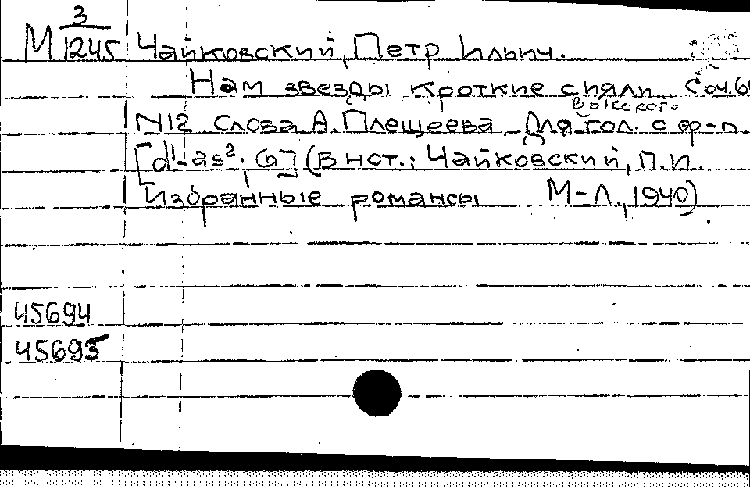 3
М 1245 Чайковский, Петр Ильич.
Нам звезды кроткие сияли Соч.60
высокого
N12 Слова А. Плещеева Для гол. с ф-п.
[d¹-as². G] (В нот.: Чайковский, П.И.
Избранные романсы М-Л., 1940)
45694
45695